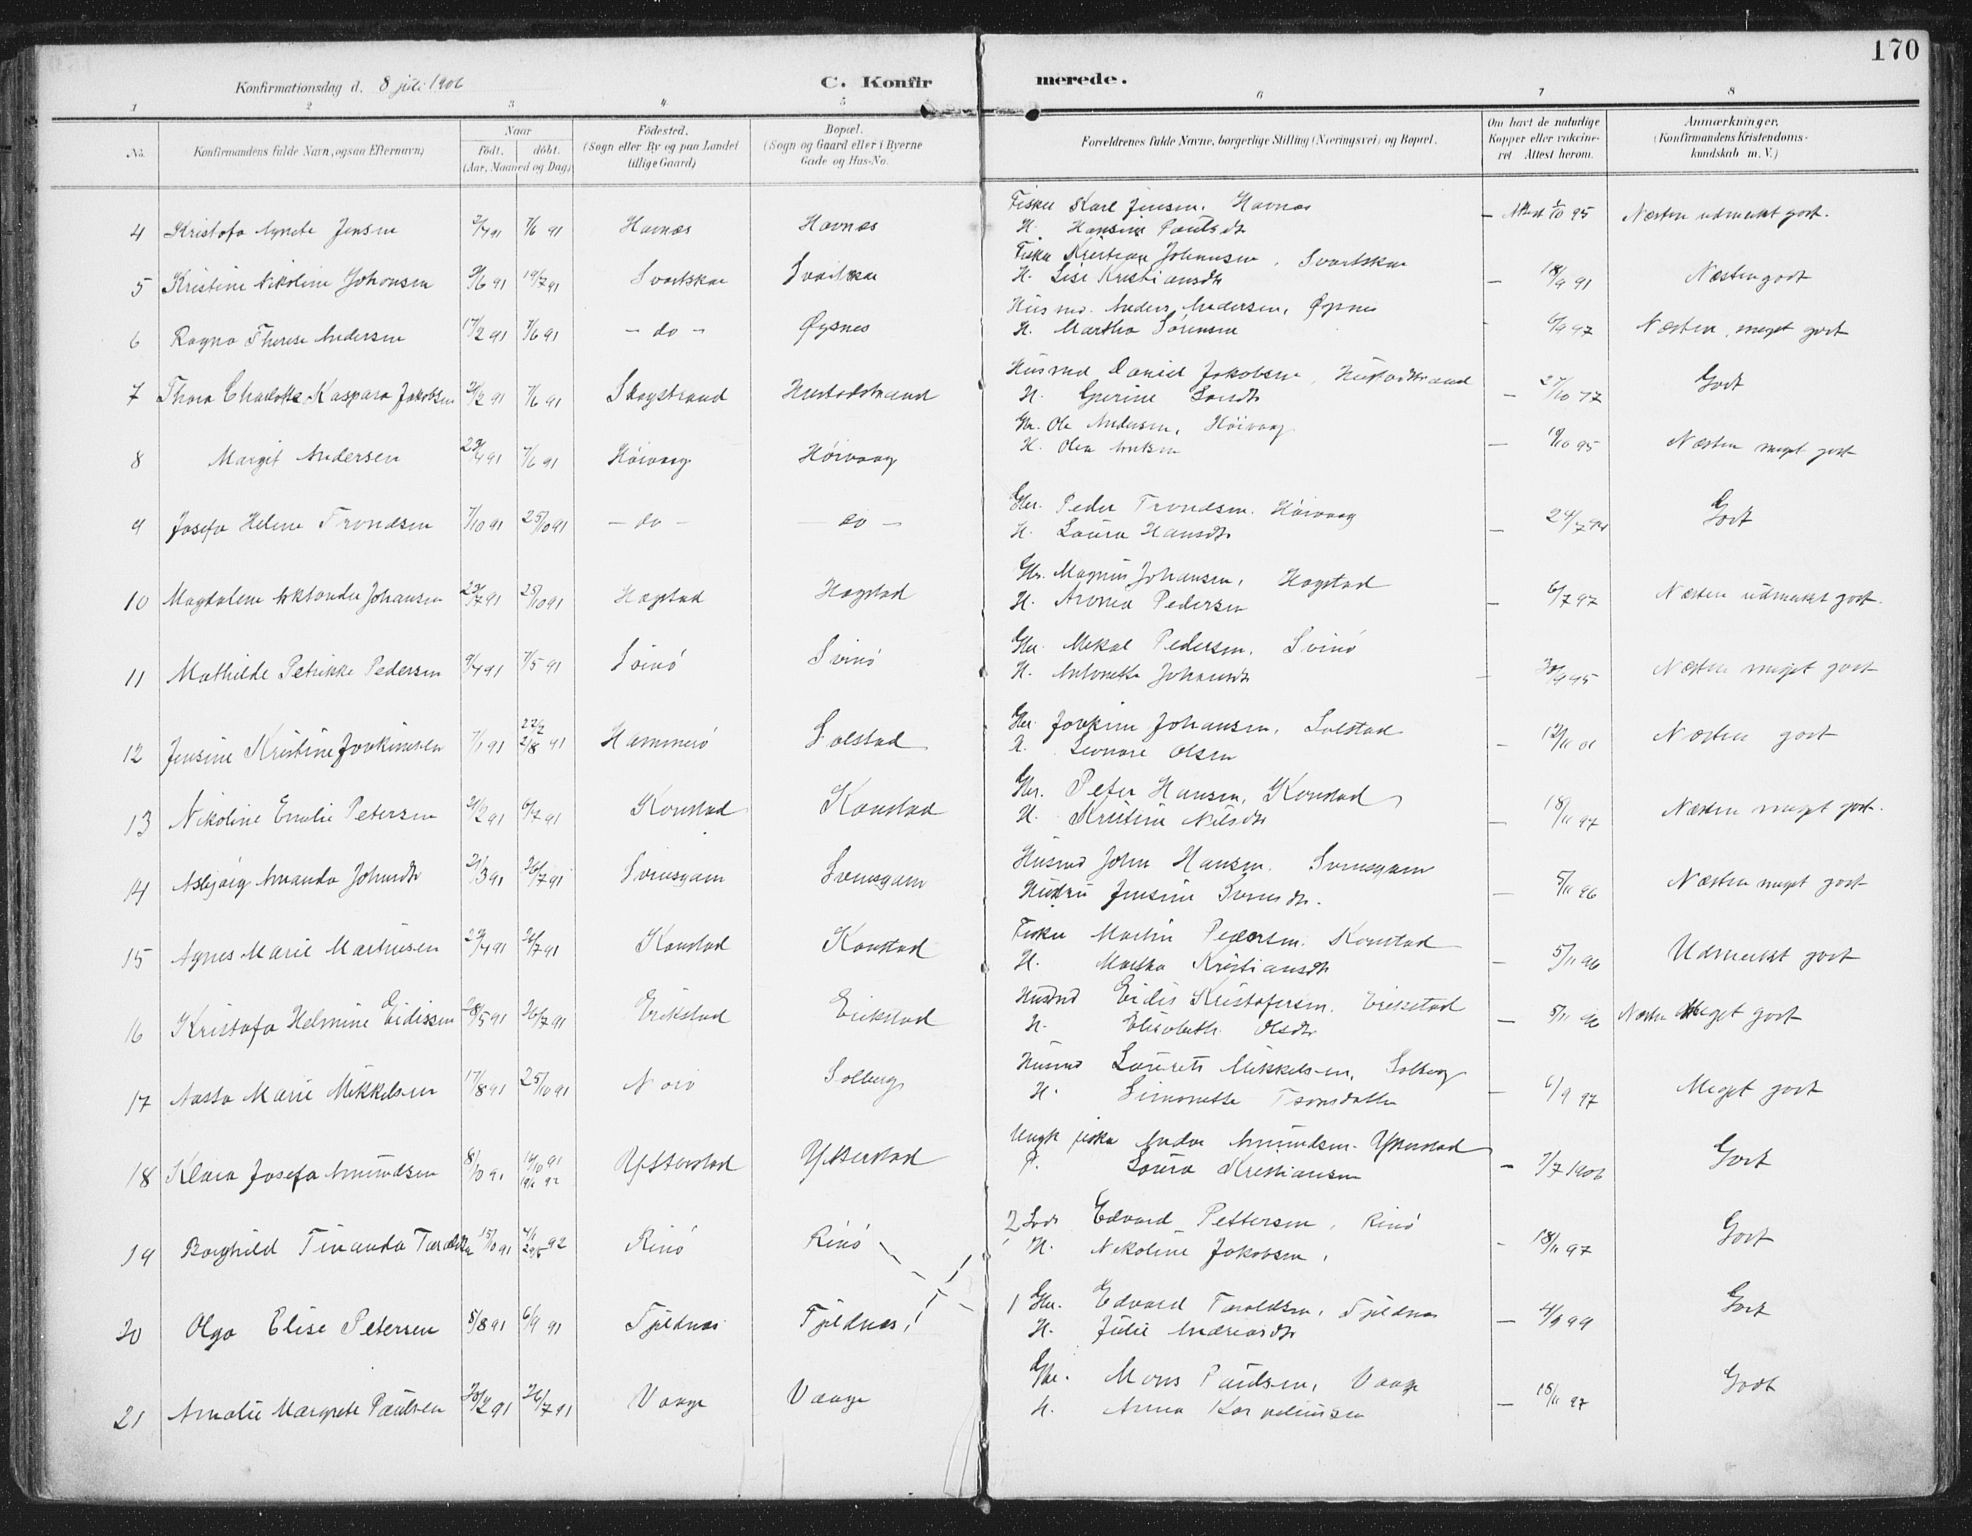 170
Konfirmationsdag d. 8 juli 1906 C. Konfir merede.
1 2 3 4 5 6 7 8
No. Konfirmandens fulde Navn, ogsaa Efternavn) Naar Født. døbt. (Aar, Maaned og Dag) Fødested. (Sogn eller By og paa Landet tillige Gaard) Bopæl. (Sogn og Gaard eller i Byerne Gade og Hus-No. Forældrenes fulde Navne, borgerlige Stilling (Næringsvei) og Bopæl. Om havt de naturlige Kopper eller vakcineret. Attest herom. Anmærkninger. (Konfirmandens Kristendomskundskab m. V.)
4 Kristofa Agnete Jensen 7/6 91 Havnæs Havnæs Fisker Karl Jensen. Havnæs — Attest 1/10 95 Næsten udmerket godt.
H. Hansine Paulsdtr
5 Kristine Nikoline Johansen 9/6 91 19/7 91 Svartskar Svartskar Fisker Kristian Johansen, Svartskar — 18/9 91 Næsten godt
H. Lise Kristiansdtr
6 Ragna Therese Andersen 17/2 91 7/6 91 — do — Øysnes Husmd. Anders Andersen, Øysnes 6/9 97 Næsten meget godt
H. Martha Sørensen
7 Thora Charlotte Kaspara Jakobsen 7/6 91 Skogstrand Hustadstrand Husmd Daniel Jakobsen, Hustadstrand — 27/10 77 Godt
H. Gurine
8 Margit Andersen 29/4 91 7/6 91 Høivaag Høivaag Gbr. Ole Andersen, Høivaag — 19/10 95 Næsten meget godt
H. Olea
9 Josefa Helene Trondsen 7/10 91 25/10 91 — do — — do — Gbr. Peder Trondsen. Høivaag — 24/7 94 Godt
H. Laura Hansdtr
10 Magdalene Johansen 23/7 91 25/10 91 Hagstad Hagstad Gbr. Magnus Johansen, Hagstad — 6/7 97 Næsten udmerket godt.
H. Pedersen
11 Mathilde Petrikke Pedersen 9/4 91 7/5 91 Svinø Svinø Gbr. Mekal Pedersen, Svinø — 30/9 95 Næsten meget godt
H. Antonette Johansdtr
12 Jensine Kristine Joakimsen 7/1 91 22/2 2/8 91 Hammerø Solstad Gbr. Joakim Johansen, Solstad — 12/11 01 Næsten godt
H. Leonore Olsen
13 Nikoline Emelie Petersen 21/2 91 6/7 91 Konstad Konstad Gbr. Peter Hansen, Konstad — 18/11 97 Næsten meget godt.
H. Kristine Nilsdtr
14 Asbjørg Amanda Johnsdtr 21/3 91 26/7 91 Svensgam Svensgam Husmd John Hansen. Svensgam — 5/11 96 Næsten meget godt
Hustru Jensine
15 Agnes Marie Martinsen 29/4 91 26/7 91 Konstad Konstad Fisker Martin Pedersen. Konstad — 5/11 96 Udmerket godt
H. Martha Kristiansdtr
16 Kristofa Helmine Eidissen 28/5 91 26/7 91 Erikstad Erikstad Husmd Eidis Kristofersen. Erikstad — 5/11 96 Næsten Meget godt
H. Elisabeth Olsdtr
17 Aasta Marie Mikkelsen 17/8 91 25/10 91 Solberg Husmd Laurits Mikkelsen, Solberg — 6/9 97 Meget godt
H. Simonette
18 Klara Josefa Amundsen 8/10 91 14/10 91 Ytterstad Ytterstad Ungk. fisker Andor Amundsen. Ytterstad — 7/7 1906 Godt
P. Laura Kristiansen
19 Borghild Tinanda Taraldsen 15/10 91 Rinø Rinø 2 Edvard Pettersen, Rinø — 18/11 97 Godt
H. Nikoline Jakobsen,
20 Olga Elise Petersen 5/8 91 6/9 91 Tjeldnæs Tjeldnæs 1 Gbr. Edvard Taraldsen, Tjeldnæs — Godt
H. Julie Andreasdtr
21 Amalie Margrete Paulsen 20/2 91 26/7 91 Vaage Vaage Gbr. Mons Paulsen, Vaage — 18/11 97 Godt
H. Anna Kornelius​en